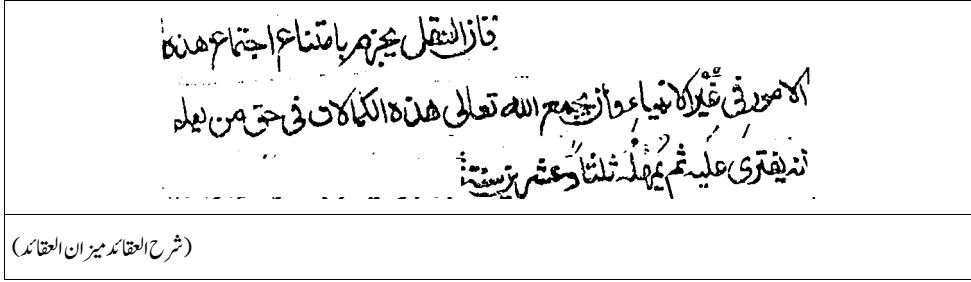 فان النقل يجزم بامتناع اجتماع هذه
الامور فى غير الانبياء وأن يجمع الله تعالى هذه الكمالات فى حق من يعلم
انه يفترى عليه ثم يمهله ثلثا وعشرين سنة
(شرح العقائد میزان العقائد)